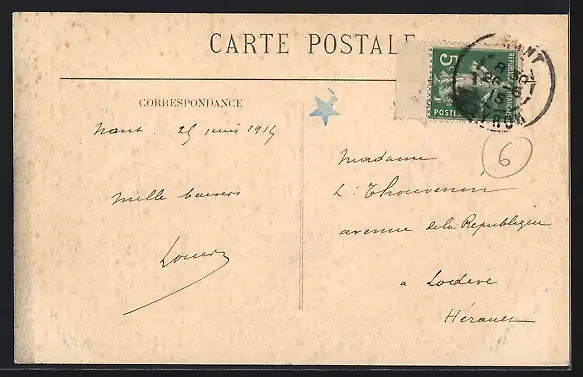 CARTE POSTALE
5c
REPUBLIQUE FRANÇAISE
POSTES
NANT
26-6
15
AVEYRON
CORRESPONDANCE
Nant. 25 juin 1915
mille baisers
6
Madame
L: Thouvenin
avenue de la Republique
a Lodève
Hérault